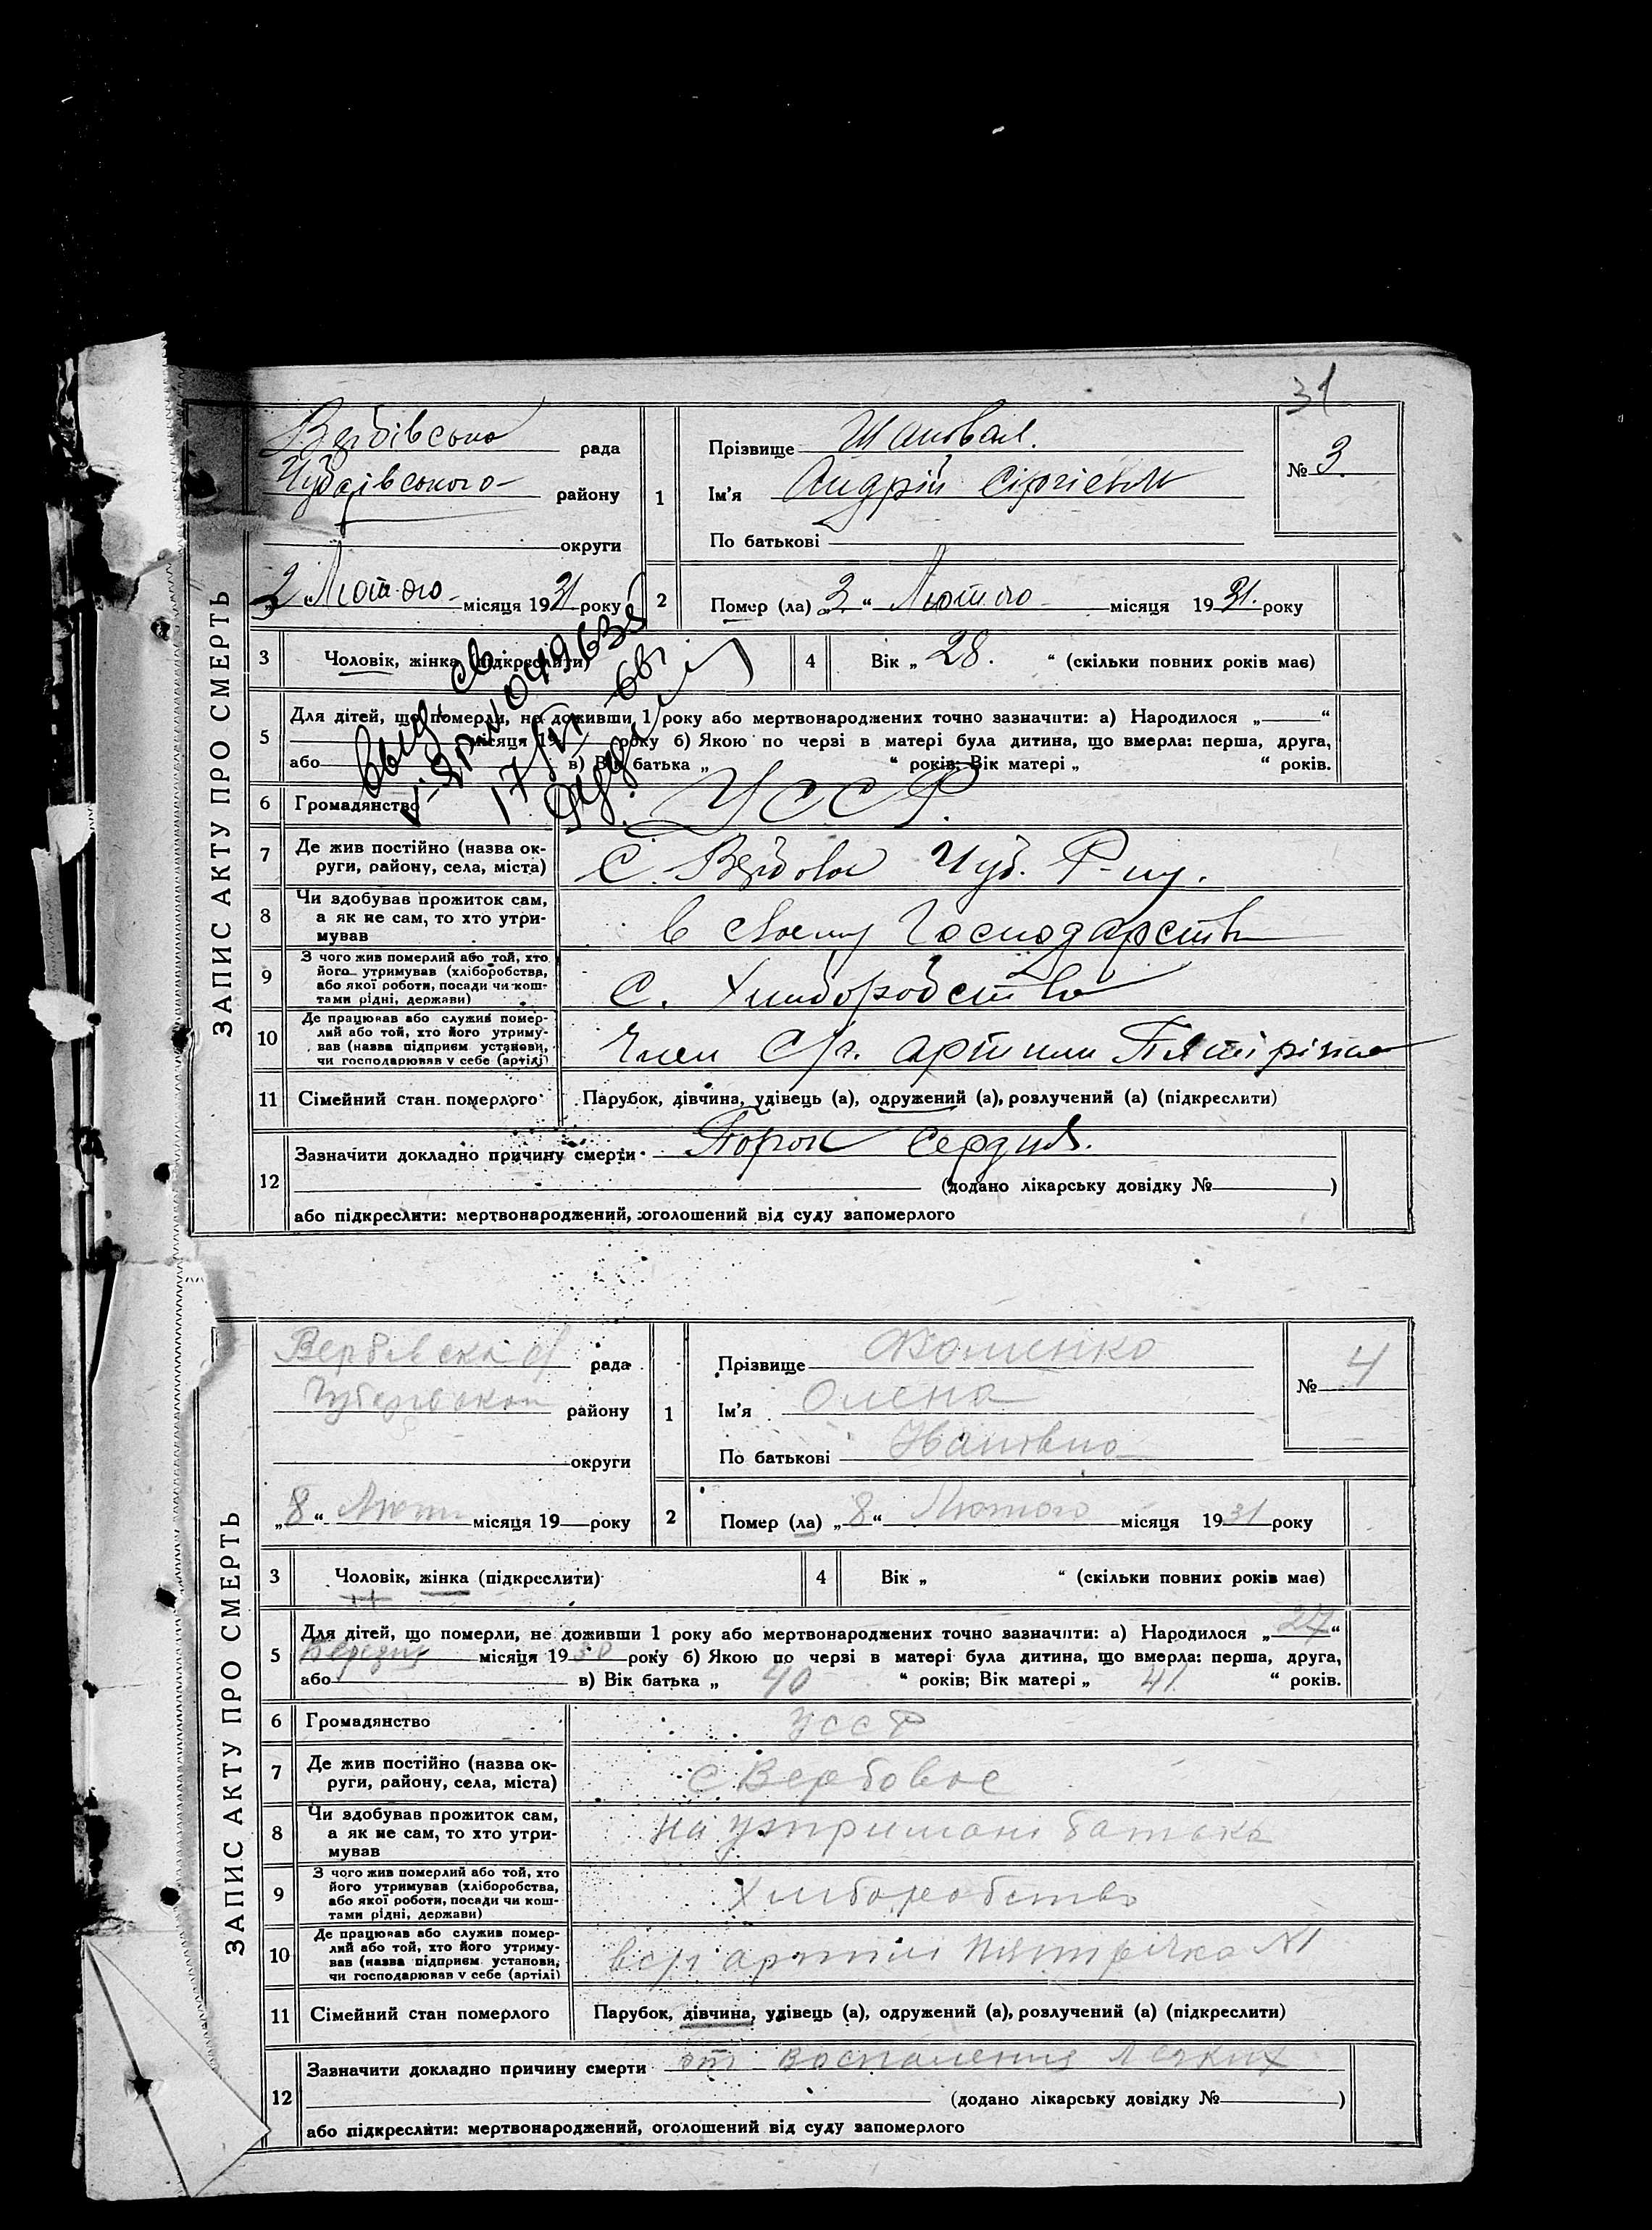 31
ЗАПИС АКТУ ПРО СМЕРТЬ
Вербівсько рада
Чубарівського району
округи
1
Прізвище Шаповал.
Ім'я Андрій Сергієвич
По батькові
№ 3
„2“ Лютого місяця 1931 року
2 Помер (ла) „2“ Лютого місяця 1931 року
3 Чоловік, жінка (підкреслити)
4 Вік „ 28. “ (скільки повних років має)
5 Для дітей, що померли, не доживши 1 року або мертвонароджених точно зазначити: а) Народилося „ “
місяця 19 року б) Якою по черзі в матері була дитина, що вмерла: перша, друга,
або в) Вік батька „ “ років; Вік матері „ “ років.
17/VI-66г
6 Громадянство УССР.
7 Де жив постійно (назва округи, району, села, міста) С. Вербова Чуб. Р-ну.
8 Чи здобував прожиток сам, а як не сам, то хто утримував в своему Господарстві
9 З чого жив померлий або той, хто його утримував (хліборобства, або якої роботи, посади чи коштами рідні, держави) С. Хлиборобство
10 Де працював або служив померлий або той, хто його утримував (назва підприєм. установи, чи господарював у себе (артілі) Член С/г. артили Пятирічка
11 Сімейний стан померлого Парубок, дівчина, удівець (а), одружений (а), розлучений (а) (підкреслити)
12 Зазначити докладно причину смерти Порок Сердця.
(додано лікарську довідку № )
або підкреслити: мертвонароджений, оголошений від суду запомерлого
ЗАПИС АКТУ ПРО СМЕРТЬ
Вербівска с/ рада
Чубарівskой району
округи
1
Прізвище Фоменко
Ім'я Олена
По батькові Ивановна
№ 4
„8“ Люти місяця 19 року
2 Помер (ла) „8“ Лютого місяця 1931 року
3 Чоловік, жінка (підкреслити)
4 Вік „ “ (скільки повних років має)
5 Для дітей, що померли, не доживши 1 року або мертвонароджених точно зазначити: а) Народилося „27“
місяця 1930 року б) Якою по черзі в матері була дитина, що вмерла: перша, друга,
або в) Вік батька „ 40 “ років; Вік матері „ 41 “ років.
6 Громадянство УССР
7 Де жив постійно (назва округи, району, села, міста) с Вербовое
8 Чи здобував прожиток сам, а як не сам, то хто утримував на утримані батька
9 З чого жив померлий або той, хто його утримував (хліборобства, або якої роботи, посади чи коштами рідні, держави) Хлиборобство
10 Де працював або служив померлий або той, хто його утримував (назва підприєм. установи, чи господарював у себе (артілі) в с/г артілі Пятирічка №1
11 Сімейний стан померлого Парубок, дівчина, удівець (а), одружений (а), розлучений (а) (підкреслити)
12 Зазначити докладно причину смерти от воспаления легких
(додано лікарську довідку № )
або підкреслити: мертвонароджений, оголошений від суду запомерлого